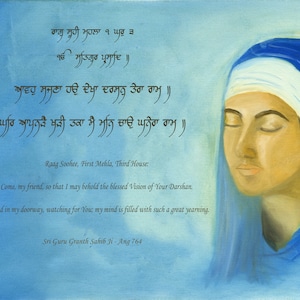 ਰਾਗੁ ਸੂਹੀ ਮਹਲਾ ੧ ਘਰੁ ੩
ੴ ਸਤਿਗੁਰ ਪ੍ਰਸਾਦਿ ॥
ਆਵਹੁ ਸਜਣਾ ਹਉ ਦੇਖਾ ਦਰਸਨੁ ਤੇਰਾ ਰਾਮ ॥
ਘਰਿ ਆਪਨੜੈ ਖੜੀ ਤਕਾ ਮੈ ਮਨਿ ਚਾਉ ਘਨੇਰਾ ਰਾਮ ॥
Raag Soohee, First Mehla, Third House:
Come, my friend, so that I may behold the blessed Vision of Your Darshan.
in my doorway, watching for You; my mind is filled with such a great yearning.
Sri Guru Granth Sahib Ji - Ang 764